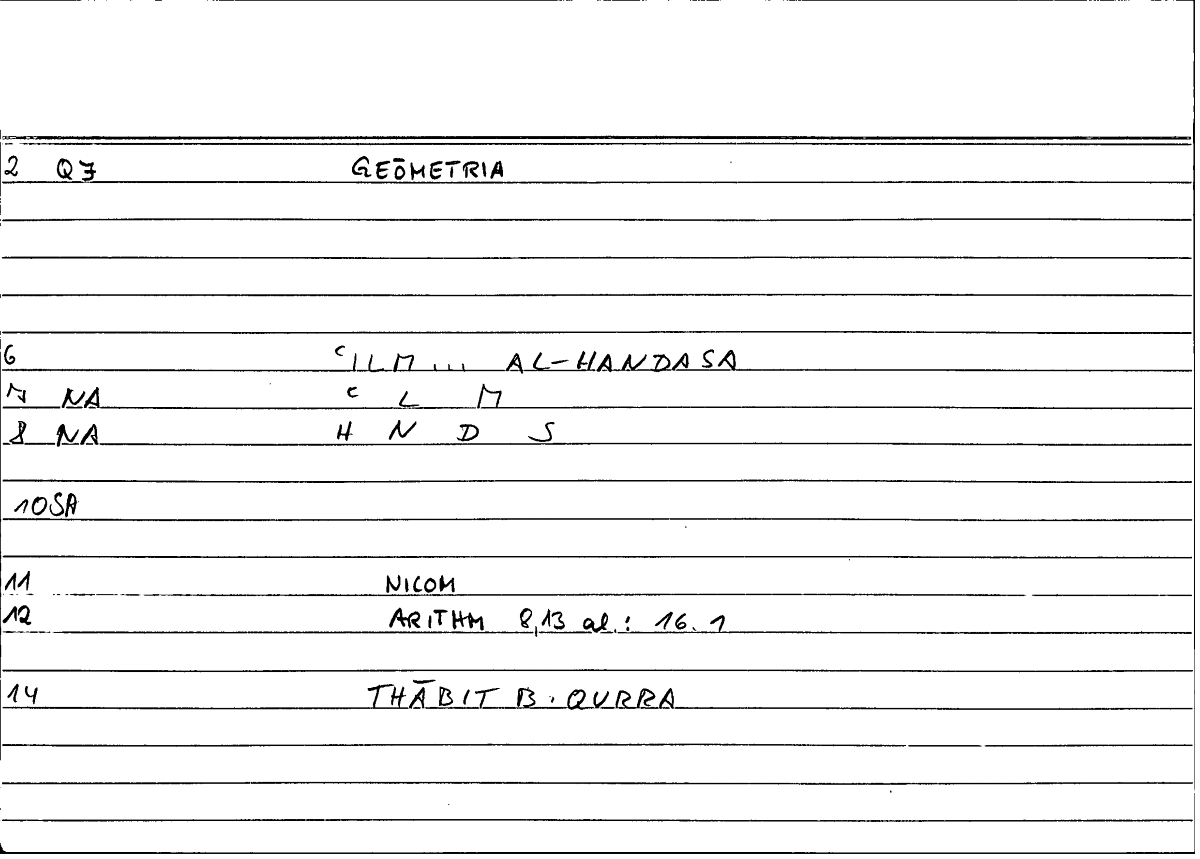 2 Q7 GEŌMETRIA
6 ʿILM ... AL-HANDASA
7 NA ʿ L M
8 NA H N D S
10SA
11 NICOM
12 ARITHM 8,13 al.: 16.1
14 THĀBIT B. QURRA